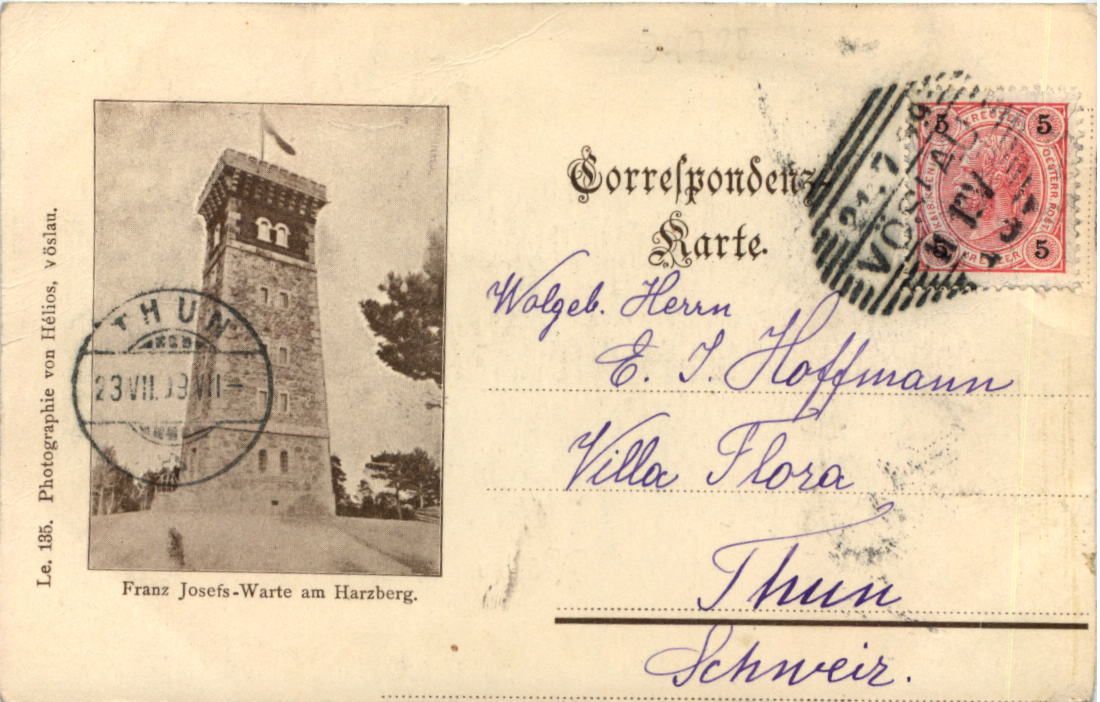 Correspondenz-
Karte.
Wolgeb. Herrn
E. J. Hoffmann
Villa Flora
Thun
Schweiz.
Le. 135. Photographie von Hélios, Vöslau.
Franz Josefs-Warte am Harzberg.
THUN
23 VII. 99 VII-
21.7.99
VÖSLAU
5
5
5
5
KREUZER
OESTERR. POST